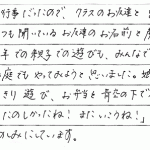 行事だったので、クラスのお友達と
つも聞いているお友達のお名前と
年での親子での遊びも、みんなで
庭でもやってみようと思いました。地
きり遊び、お弁当と青空の下で
たのしかったね！またいこうね！」
しみにしています。